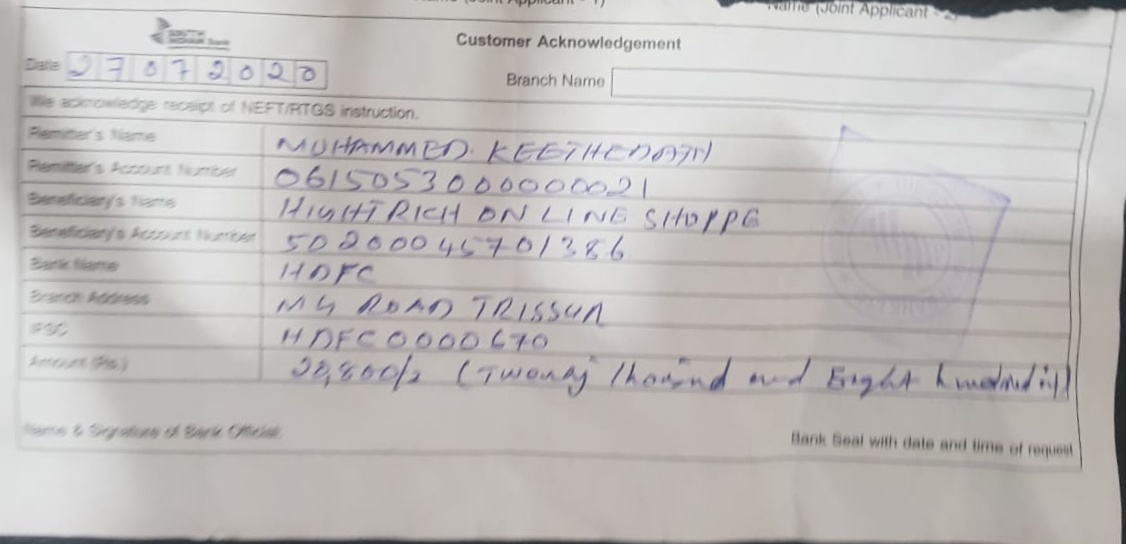 Name (Joint Applicant - 2)
SOUTH INDIAN Bank
Customer Acknowledgement
Date 27072020
Branch Name
We acknowledge receipt of NEFT/RTGS instruction.
Remitter's Name MUHAMMED.
Remitter's Account Number 0615053000000021
Beneficiary's Name HIGHRICH ON LINE SHOPPE
Beneficiary's Account Number 50200045701386
Bank Name HDFC
Branch Address MG ROAD TRISSUR
IFSC HDFC0000670
Amount (Rs.) (Twenty Thousand and Eight hundred
Name & Signature of Bank Official:
Bank Seal with date and time of request